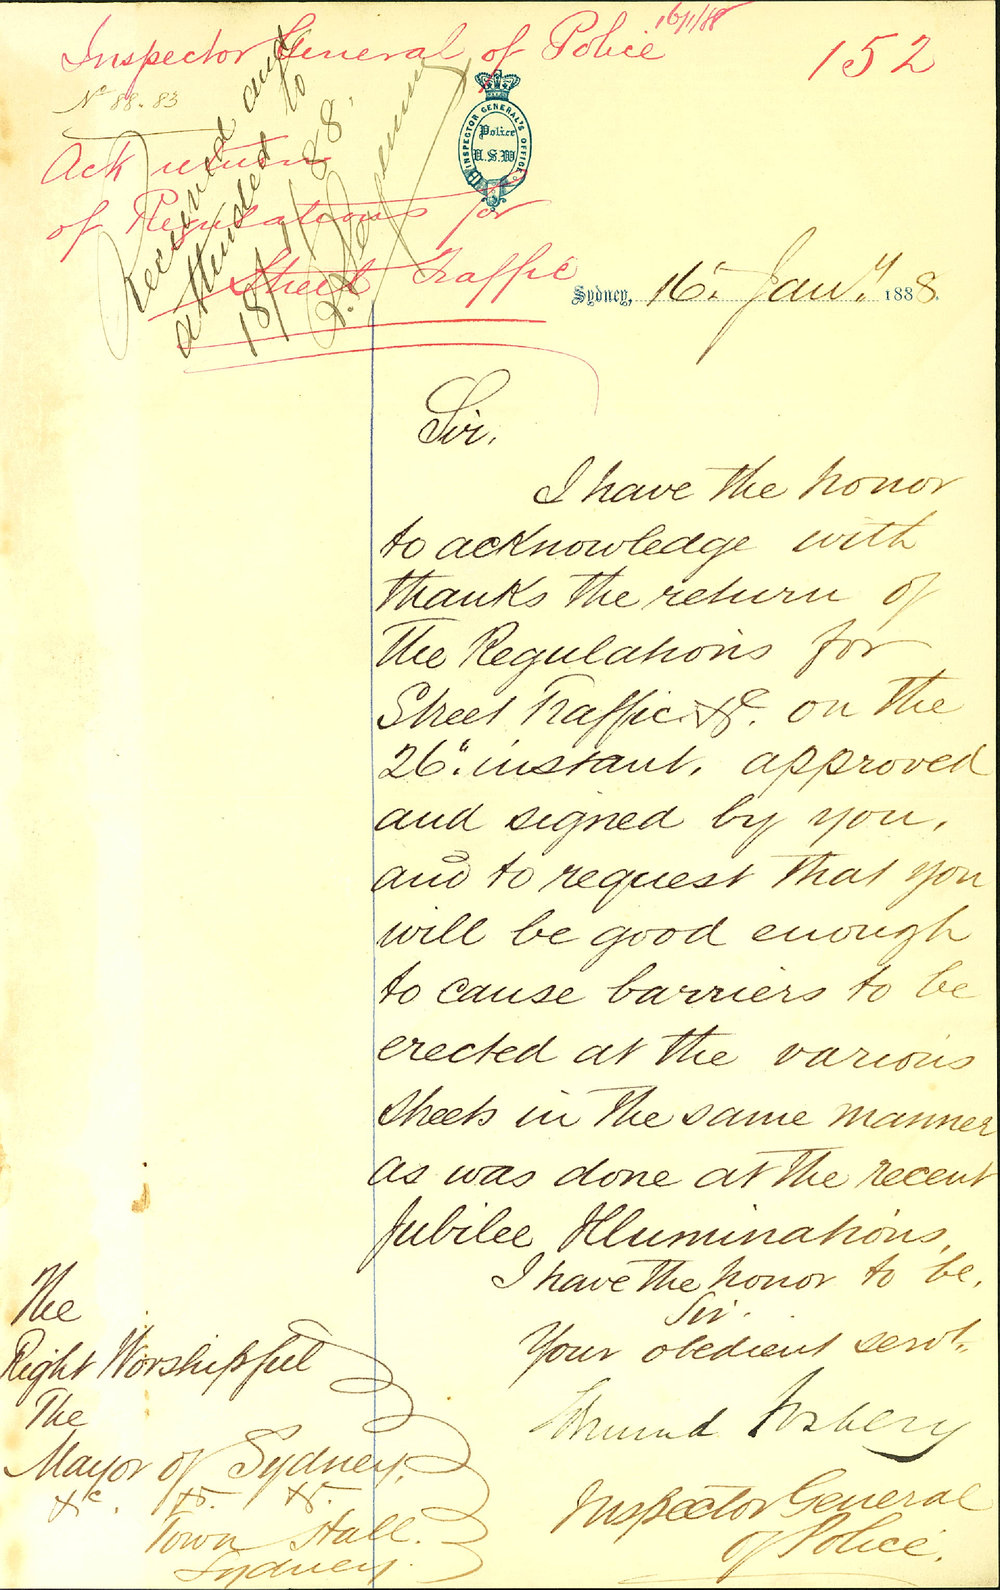 Inspector General of Police 16/1/88
152
No 88.83
Ack return
of Regulations for
Street Traffic
Received and
attended to
18/1/88.
INSPECTOR GENERAL'S OFFICE
Police
N.S.W
Sydney, 16" Jany. 1888.
Sir,
I have the honor
to acknowledge with
thanks the return of
the Regulations for
Street Traffic &c. on the
26" instant, approved
and signed by you,
and to request that you
will be good enough
to cause barriers to be
erected at the various
streets in the same manner
as was done at the recent
Jubilee Illuminations,
I have the honor to be,
Sir.
Your obedient servt.
Edmund Fosbery
Inspector General
of Police.
The
Right Worshipful
The
Mayor of Sydney,
&c. &c. &c.
Town Hall.
Sydney.